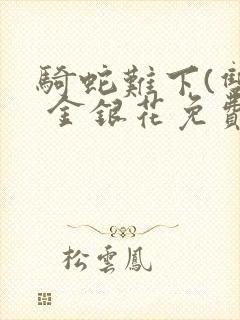 騎蛇難下(雙
金銀花免費
松雲鳳